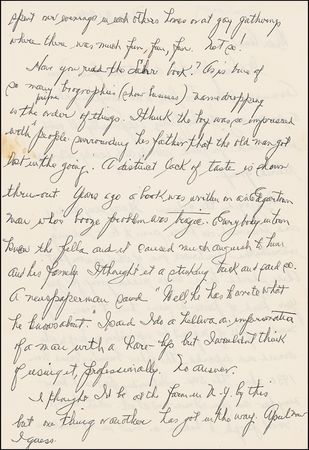 spent our evenings in each others homes or at gay gatherings
where there was much fun, fun, fun. Not so!
Have you read the book? As is true of
so many biographies (show business) name dropping
prime
is the order of things. I think the boy was so impressed
with people surrounding his father that the old man got
lost in the going. A distinct lack of taste is shown
thru-out Years ago a book was written on an
man whose booze problem was tragic. Everybody in town
knew the fella and it caused much anguish to him
and his family. I thought it a stinking trick and said so.
A newspaperman said "Well he has to write what
he knows about" I said I do a helluva an
of a man with a hare-lip but I wouldn't think
of using it professionally. No answer.
I thought I'd be at the farm in N.Y. by this
but one thing or another has got in the way.
I guess.